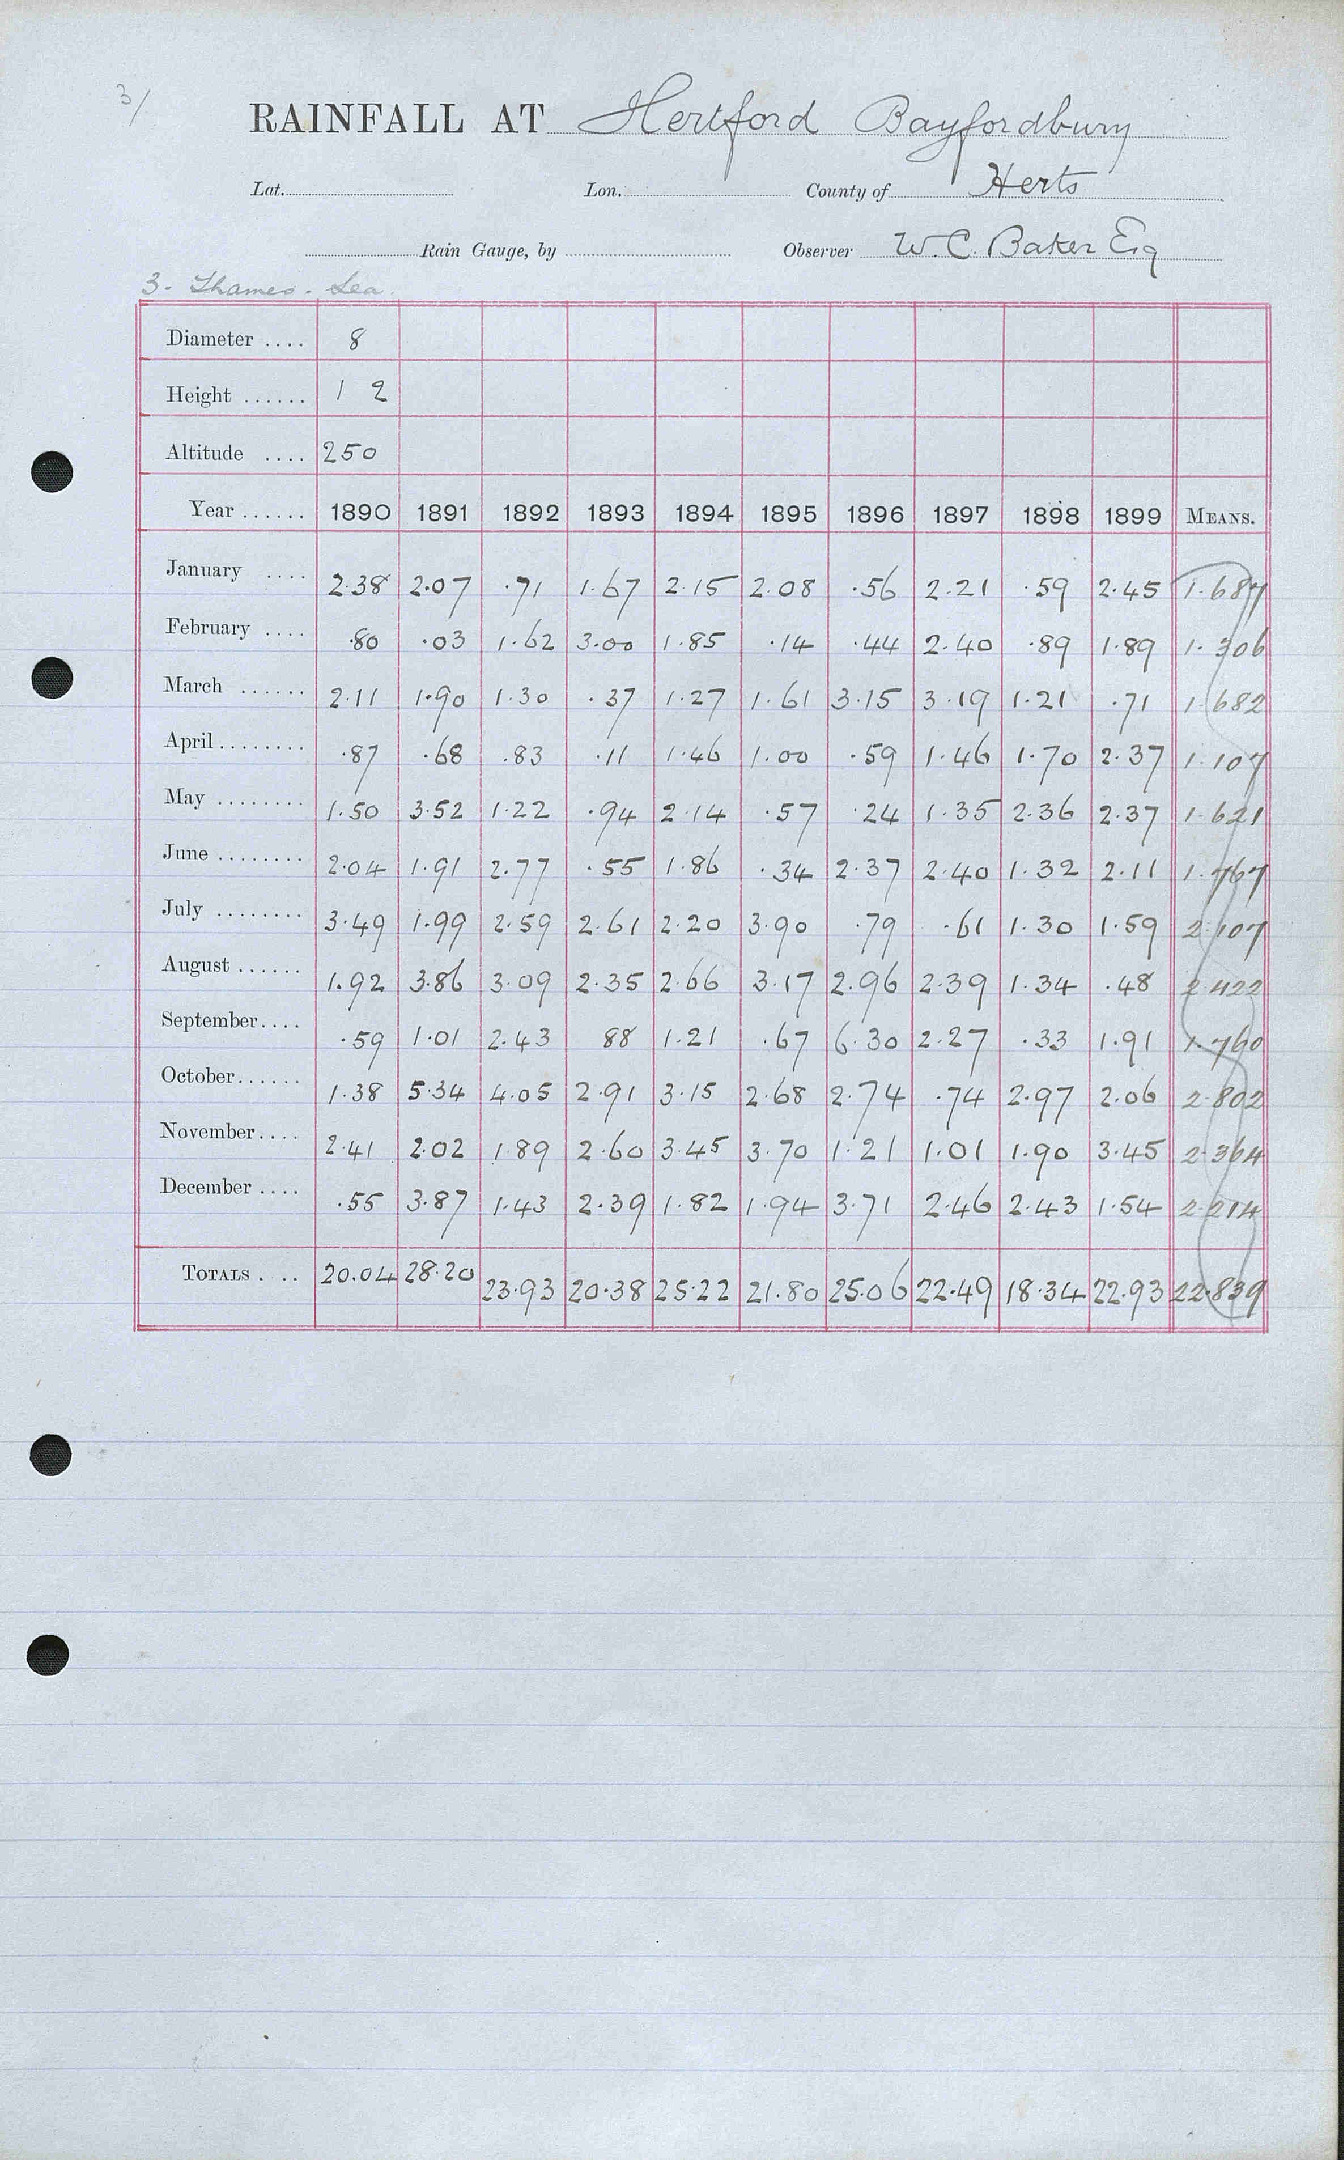 3/
RAINFALL AT Hertford Bayfordbury
Lat. Lon. County of Herts
Rain Gauge, by Observer W. C. Baker Esq
3 - Thames - Lea
Diameter .... 8
Height ...... 1 2
Altitude .... 250
Year ...... 1890 1891 1892 1893 1894 1895 1896 1897 1898 1899 MEANS.
January .... 2.38 2.07 .71 1.67 2.15 2.08 .56 2.21 .59 2.45 1.687
February .... .80 .03 1.62 3.00 1.85 .14 .44 2.40 .89 1.89 1.306
March ...... 2.11 1.90 1.30 .37 1.27 1.61 3.15 3.19 1.21 .71 1.682
April ........ .87 .68 .83 .11 1.46 1.00 .59 1.46 1.70 2.37 1.107
May ........ 1.50 3.52 1.22 .94 2.14 .57 .24 1.35 2.36 2.37 1.621
June ........ 2.04 1.91 2.77 .55 1.86 .34 2.37 2.40 1.32 2.11 1.767
July ........ 3.49 1.99 2.59 2.61 2.20 3.90 .79 .61 1.30 1.59 2.107
August ...... 1.92 3.86 3.09 2.35 2.66 3.17 2.96 2.39 1.34 .48 2.422
September .... .59 1.01 2.43 88 1.21 .67 6.30 2.27 .33 1.91 1.760
October ...... 1.38 5.34 4.05 2.91 3.15 2.68 2.74 .74 2.97 2.06 2.802
November .... 2.41 2.02 1.89 2.60 3.45 3.70 1.21 1.01 1.90 3.45 2.364
December .... .55 3.87 1.43 2.39 1.82 1.94 3.71 2.46 2.43 1.54 2.214
TOTALS . .. 20.04 28.20 23.93 20.38 25.22 21.80 25.06 22.49 18.34 22.93 22.839